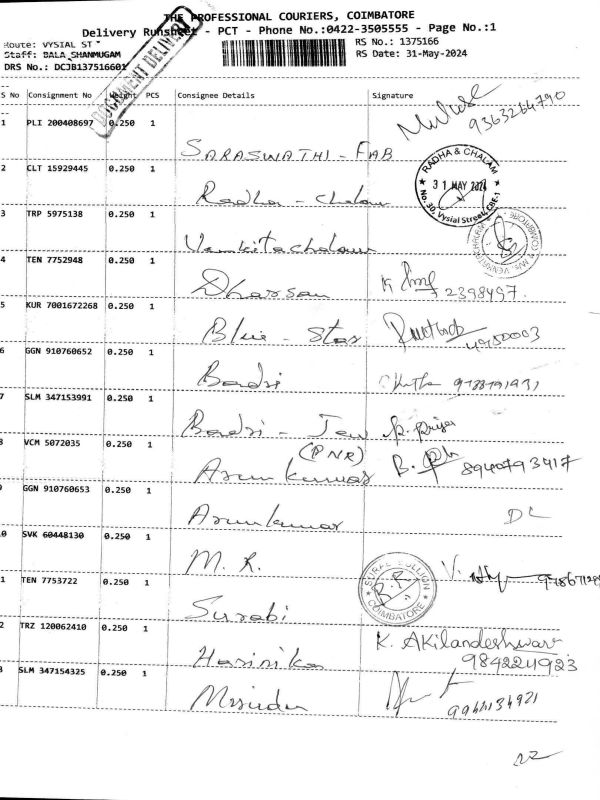 THE PROFESSIONAL COURIERS, COIMBATORE
Delivery Runsheet - PCT - Phone No.:0422-3505555 - Page No.:1
Route: VYSIAL ST
RS No.: 1375166
Staff: BALA SHANMUGAM
RS Date: 31-May-2024
DRS No.: DCJB137516601
DOCUMENT DELIVERY
S No Consignment No Weight PCS Consignee Details Signature
1 PLI 200408697 0.250 1
9363264790
SARASWATHI - FAB
2 CLT 15929445 0.250 1
RADHA & CHALAM
31 MAY 2024
No. 30, Vysial Street, CBE-1
Radha - Chalam
3 TRP 5975138 0.250 1
Venkitachalam
4 TEN 7752948 0.250 1
Dharsan
2398497
5 KUR 7001672268 0.250 1
Blue - Star
6 GGN 910760652 0.250 1
Badri
7 SLM 347153991 0.250 1
Badri - Jew
P. Priya
(PNR)
8 VCM 5072035 0.250 1
Arun kumar
8940793417
9 GGN 910760653 0.250 1
Arunkumar
DL
10 SVK 60448130 0.250 1
M. R.
SURABI BULLION
COIMBATORE
11 TEN 7753722 0.250 1
Surabi
12 TRZ 120062410 0.250 1
K. Akilandeshwari
9842241923
Harinika
13 SLM 347154325 0.250 1
9944134921